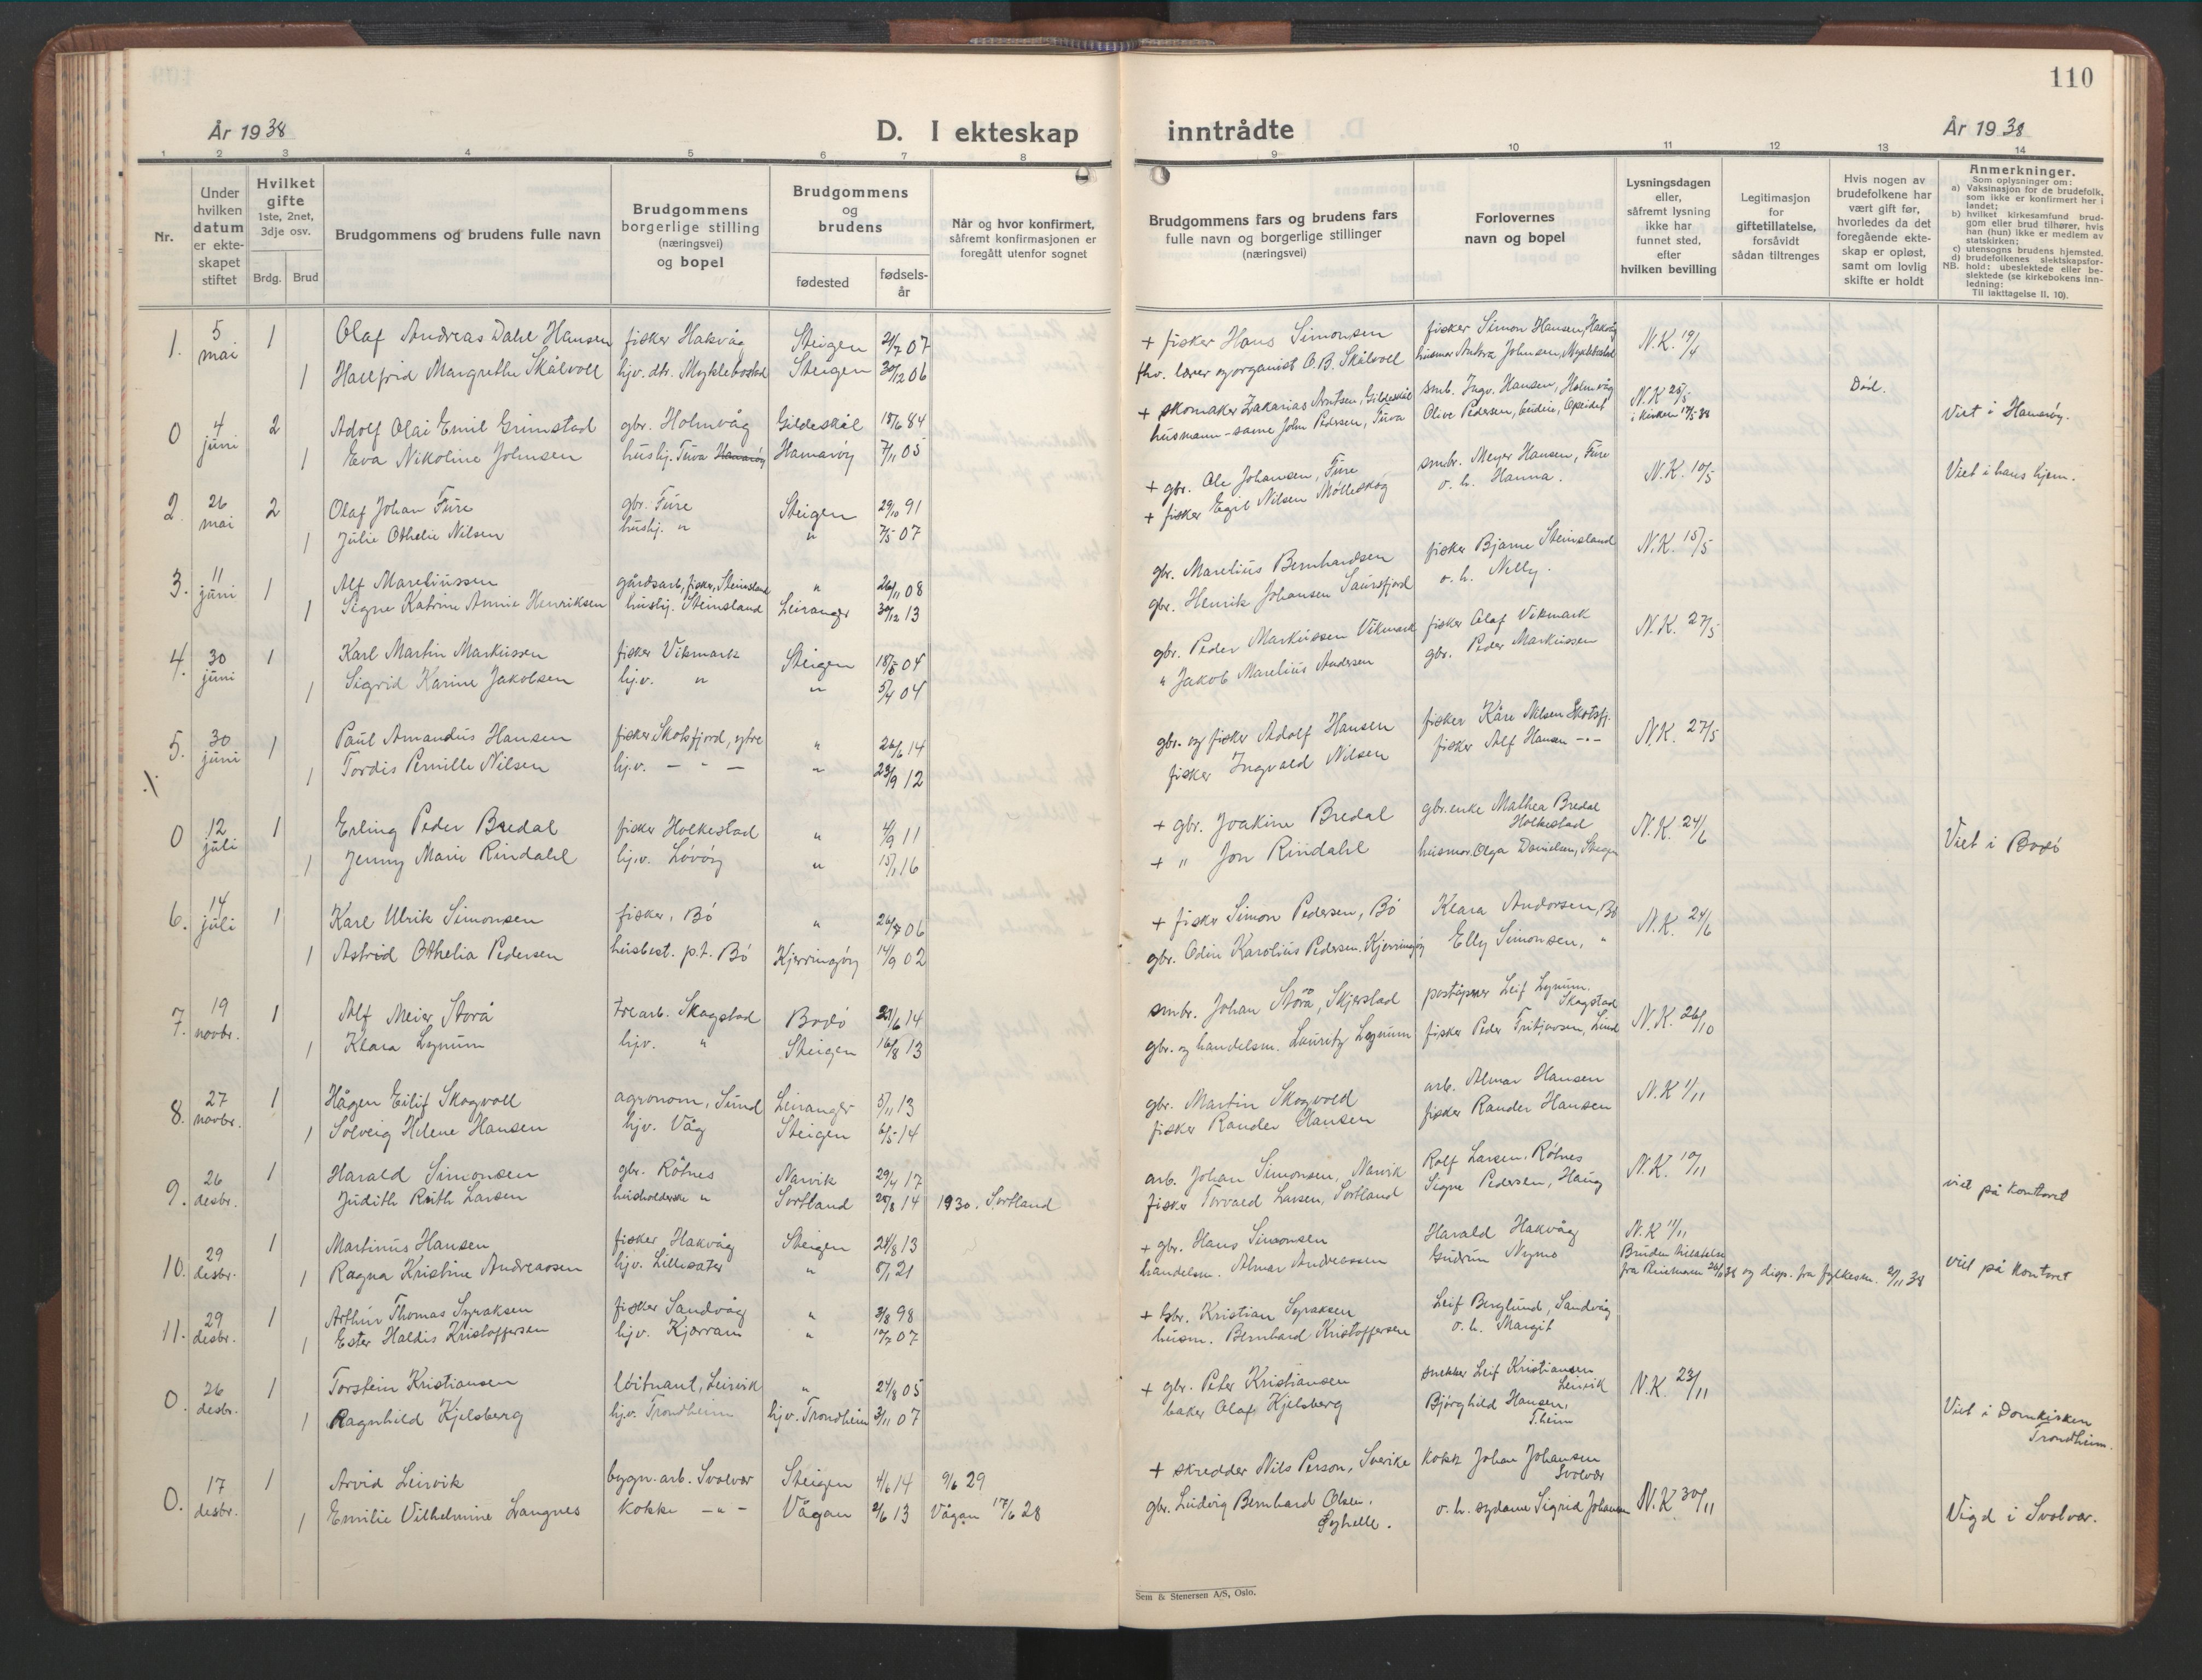 110
År 1938
D. I ekteskap
inntrådte
År 1938
1 2 3 4 5 6 7 8 9 10 11 12 13 14
Nr.
Under hvilken datum er ekteskapet stiftet
Hvilket gifte 1ste, 2net, 3dje osv.
Brdg. Brud
Brudgommens og brudens fulle navn
Brudgommens borgerlige stilling (næringsvei) og bopel
Brudgommens og brudens
fødested
fødsels-år
Når og hvor konfirmert, såfremt konfirmasjonen er foregått utenfor sognet
Brudgommens fars og brudens fars fulle navn og borgerlige stillinger (næringsvei)
Forlovernes navn og bopel
Lysningsdagen eller, såfremt lysning ikke har funnet sted, efter hvilken bevilling
Legitimasjon for giftetillatelse, forsåvidt sådan tiltrenges
Hvis nogen av brudefolkene har vært gift før, hvorledes da det foregående ekteskap er opløst, samt om lovlig skifte er holdt
Anmerkninger.
Som oplysninger om:
a) Vaksinasjon for de brudefolk, som ikke er konfirmert her i landet;
b) hvilket kirkesamfund brudgom eller brud tilhører, hvis han (hun) ikke er medlem av statskirken;
c) utensogns brudens hjemsted.
d) brudefolkenes slektskapsforhold: ubeslektede eller beslektede (se kirkebokens innledning:
NB. Til iakttagelse II. 10).
1. 5 mai 1 Olaf Andreas Dahl Hansen fisker Hakvåg Steigen 21/7 07 + fisker Hans Simonsen fisker Simon Hansen, Hakvåg N.K. 19/4
1 Hallfrid Margrethe Skålvoll hjv. dtr. Myklebostad Steigen 30/12 06 fhv. lærer og organist O.B. Skålvoll husmor Antora Johnsen, Myklebostad
0 4 juni 2 Adolf Olai Emil Grimstad gbr. Holmvåg Gildeskål 18/6 84 + skomaker Zakarias Arntsen, Gildeskål smb. Ingv. Hansen, Holmvåg N.K 25/5 Død. Viet i Hamarøy.
1 Eva Nikoline Johnsen huslig. Furva Hamarøy Hamarøy 7/11 05 husmann-same John Pedersen, Furva Olive Pedersen, Opeidet i kirken 17/5-38
2. 26 mai 2 Olaf Johan Füre gbr. Füre Steigen 29/10 91 + gbr. Ole Johansen, Füre smbr. Meyer Hansen, Füre N.K. 10/5 Viet i hans hjem.
1 Julie Othelie Nilsen huslj. " " 7/5 07 + fisker Egil Nilsen Mølleskog o. h. Hanna.
3. 11 juni 1 Alf Mareliussen gårdsarb, fisker, Steinsland " 26/11 08 gbr. Marelius Bernhardsen fisker Bjarne Steinsland N.K. 15/5
1 Signe Katrine Annie Henriksen huslig. Steinsland Leiranger 30/12 13 gbr. Henrik Johansen Saursfjord o. h. Nelly.
4. 30 juni 1 Karl Martin Markussen fisker Vikmark Steigen 18/5 04 gbr. Peder Markussen Vikmark fisker Olaf Vikmark N.K. 27/5
1 Sigrid Karine Jakobsen hj.v. " " 5/4 04 " Jakob Marelius Andersen gbr. Peder Markussen
5. 30 juni 1 Paul Amandus Hansen fisker Skotsfjord, ytre " 26/6 14 gbr. og fisker Adolf Hansen fisker Kåre Nilsen Skotsfj. N.K. 27/5
1 Tordis Pernille Nilsen hj.v. — " — " 23/9 12 fisker Ingvald Nilsen fisker Alf Hansen -"-
0 12 juli 1 Erling Peder Bredal fisker Holkestad " 4/9 11 + gbr. Joakim Bredal gbr.enke Mathea Bredal Holkestad N.K. 24/6 Viet i Bodø
1 Jenny Marie Rindahl hj.v. Løvøy " 15/1 16 + " Jon Rindahl husmor. Olga Danielsen, Steigen
6. 14 juli 1 Karl Ulrik Simonsen fisker, Bø " 26/7 06 + fisker Simon Pedersen, Bø Klara Andorsen, Bø N.K. 24/6
1 Astrid Othelia Pedersen husbest. p.t. Bø Kjerringøy 14/9 02 gbr. Odin Karolius Pedersen. Kjerringøy Elly Simonsen, "
7. 19 novbr. 1 Alf Meier Storå trearb. Skagstad Bodø 27/6 14 smbr. Johan Storå, Skjerstad poståpner Leif Lynum. Skagstad N.K. 26/10
1 Klara Lynum hjv. " Steigen 16/8 13 gbr. og handelsm. Lauritz Lynum fisker Peder Fritjovsen, Lund
8. 27 novbr. 1 Hågen Eilif Skogvoll agronom, Sund Leiranger 5/11 13 gbr. Martin Skogvold arb. Almar Hansen N.K 1/11
1 Solveig Helene Hansen hjv. Våg Steigen 6/5 14 fisker Rander Hansen fisker Rander Hansen
9. 26 desbr. 1 Harald Simonsen gbr. Røtnes Narvik 29/4 17 arb. Johan Simonsen, Narvik Rolf Larsen, Røtnes N.K. 10/11 viet på kontoret
Judith Ruth Larsen husholderske " Sortland 25/8 14 1930. Sortland fisker Torvald Larsen, Sortland Signe Pedersen, Haug
10. 29 desbr. 1 Martinus Hansen fisker Hakvåg Steigen 24/8 13 + gbr. Hans Simonsen Harald Hakvåg N.K 11/11 viet på kontoret
1 Ragna Kristine Andreassen hjv. Lillesæter " 5/1 21 handelsm. Almar Andreassen Gudrun Nymo Bruden tillatelse fra 26/9 38 og disp. fra fylkesm. 2/11 38
11. 29 desbr. 1 Arthur Thomas Syraksen fisker Sandvåg " 3/8 98 + gbr. Kristian Syraksen Leif Berglund, Sandvåg
1 Ester Haldis Kristoffersen hjv. Kjørran " 17/7 07 husm. Bernhard Kristoffersen o. h. Margit
0. 26 desbr. 1 Torstein Kristiansen løitnant, Leirvik " 24/8 05 + gbr. Peter Kristiansen snekker Leif Kristiansen Leirvik N.K. 23/11 Viet i Domkirken Trondheim.
1 Ragnhild Kjelsberg hj.v. Trondheim hj.v. Trondheim 3/11 07 baker Olaf Kjelsberg Bjørghild Hansen, T.heim
0. 17 desbr. 1 Arvid Leirvik bygn.arb. Svolvær Steigen 4/6 14 9/6 29 + skredder Nils Person, Sverike kokk Johan Johansen Svolvær N.K 30/11 Vigd i Svolvær.
1 Emilie Vilhelmine Langnes kokke — " — Vågan 2/6 13 Vågan 17/6 28 gbr. Ludvig Bernhard Olsen. o. h. sydame Sigrid Johansen
Sem & Stenersen A/S, Oslo.